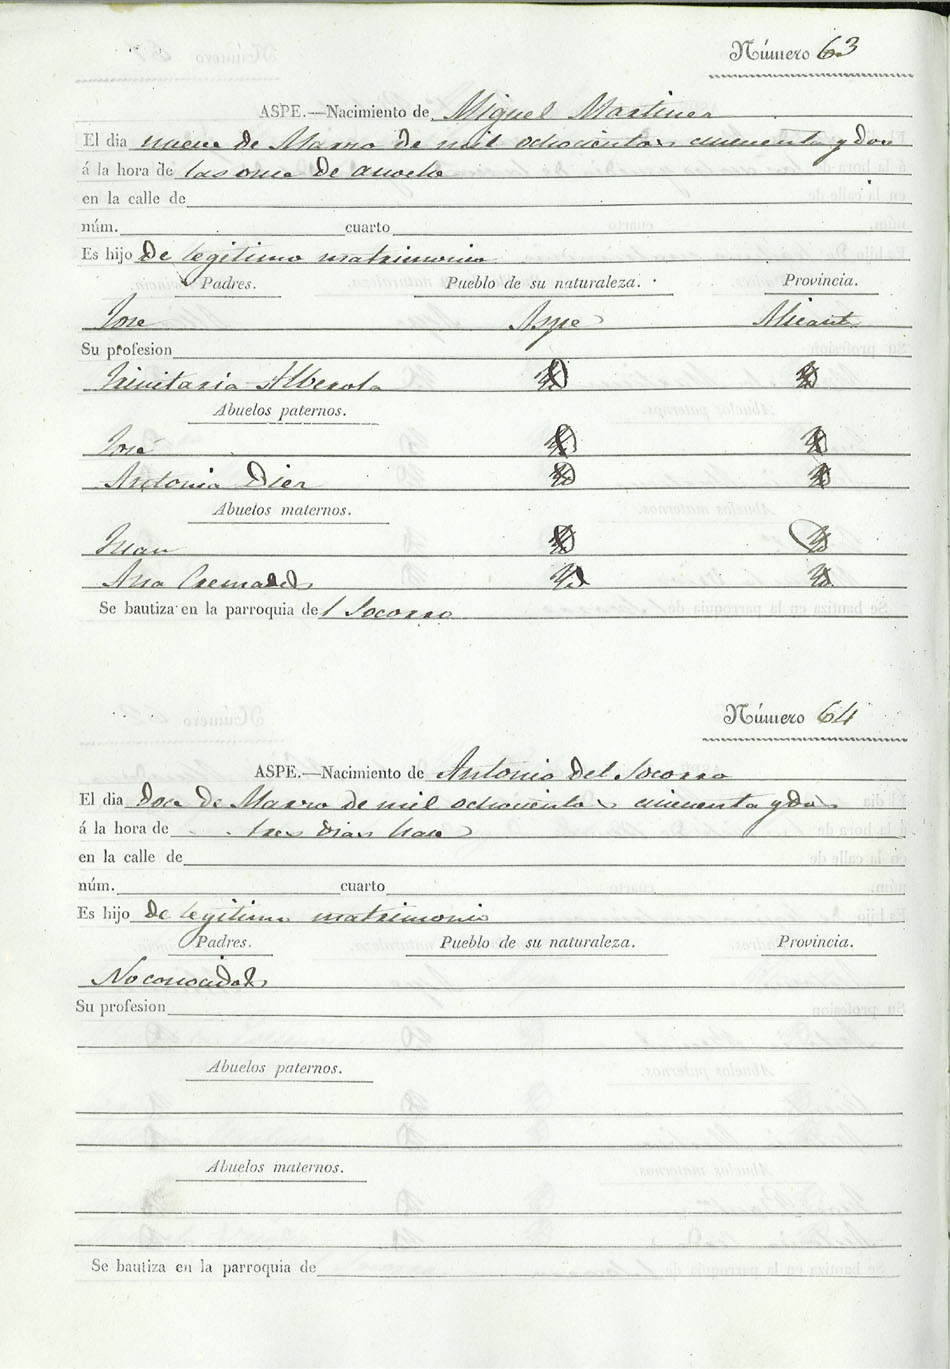 Número 63
ASPE.—Nacimiento de Miguel Martinez
El dia nueve de Marzo de mil ochocientos cincuenta y dos
á la hora de las once de anoche
en la calle de
núm. cuarto
Es hijo de legitimo matrimonio
Padres. Pueblo de su naturaleza. Provincia.
Jose Aspe Alicante
Su profesion
Trinitaria Alberola Yd Yd
Abuelos paternos.
José Yd Yd
Antonia Dier Yd Yd
Abuelos maternos.
Juan Yd Yd
Ana Cremades Yd Yd
Se bautiza en la parroquia del Socorro
Número 64
ASPE.—Nacimiento de Antonio del Socorro
El dia doce de Marzo de mil ochocientos cincuenta y dos
á la hora de tres dias hace
en la calle de
núm. cuarto
Es hijo de legitimo matrimonio
Padres. Pueblo de su naturaleza. Provincia.
No conocidos
Su profesion
Abuelos paternos.
Abuelos maternos.
Se bautiza en la parroquia de